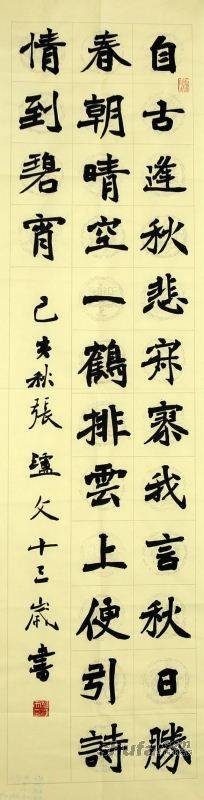 自古逢秋悲寂寥我言秋日勝
春朝晴空一鶴排雲上便引詩
情到碧霄
己亥秋張瀘文十三歲書